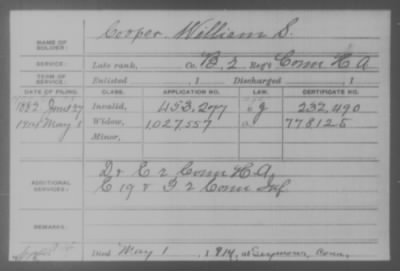 NAME OF SOLDIER: Cooper, William S.
SERVICE: Late rank, Co. B, 2 Reg't Conn H A
TERM OF SERVICE: Enlisted , 1 Discharged , 1
DATE OF FILING. CLASS. APPLICATION NO. LAW. CERTIFICATE NO.
1882 June 27 Invalid, 453,277 g 232,490
1914 May 1 Widow, 1,027,557 a 778125
Minor,
ADDITIONAL SERVICES: D & E 2 Conn H A,
C 19 & I 2 Conn Inf
REMARKS:
Died May 1, 1914, at Seymour, Conn,